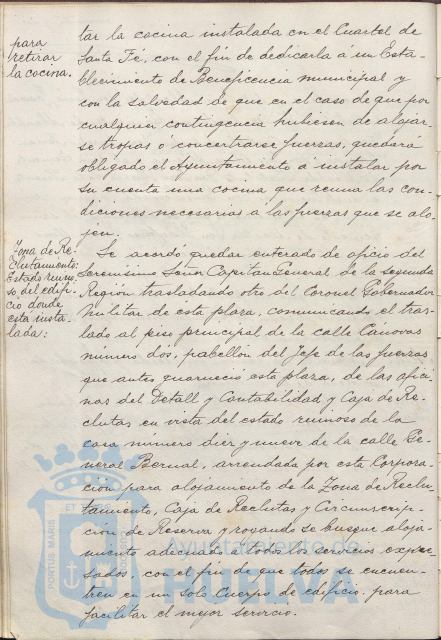 para
retirar
la cocina.
tar la cocina instalada en el Cuartel de
Santa Fé, con el fin de dedicarla á un Esta-
blecimiento de Beneficencia municipal y
con la salvedad de que en el caso de que por
cualquier contingencia hubiesen de alojar-
se tropas o concertrarse fuerzas, quedara
obligado el Ayuntamiento á instalar por
su cuenta una cocina que reuna las con-
diciones necesarias á las fuerzas que se alo-
jen.
Zona de Re-
clutamiento:
Estado ruino-
so del edifi-
cio donde
esta insta-
lada:
Se acordó quedar enterado de oficio del
Serenisimo Señor Capitan General de la segunda
Región trasladando otro del Coronel Gobernador
militar de esta plaza, comunicando el tras-
lado al piso principal de la calle Cánovas
número dos, pabellón del Jefe de las fuerzas
que antes guarneció esta plaza, de las ofici-
nas del Detall y Contabilidad y Caja de Re-
clutas en vista del estado ruinoso de la
casa número diez y nueve de la calle Ge-
neral Bernal, arrendada por esta Corpora-
ción para alojamiento de la Zona de Reclu-
tamiento, Caja de Reclutas y Circunscrip-
ción de Reserva y rogando se busque aloja-
miento adecuado a todos los servicios expre-
sados, con el fin de que todos se encuen-
tren en un solo Cuerpo de edificio, para
facilitar el mejor servicio.
PORTUS MARIS
ET
Ayuntamiento de
HUELVA